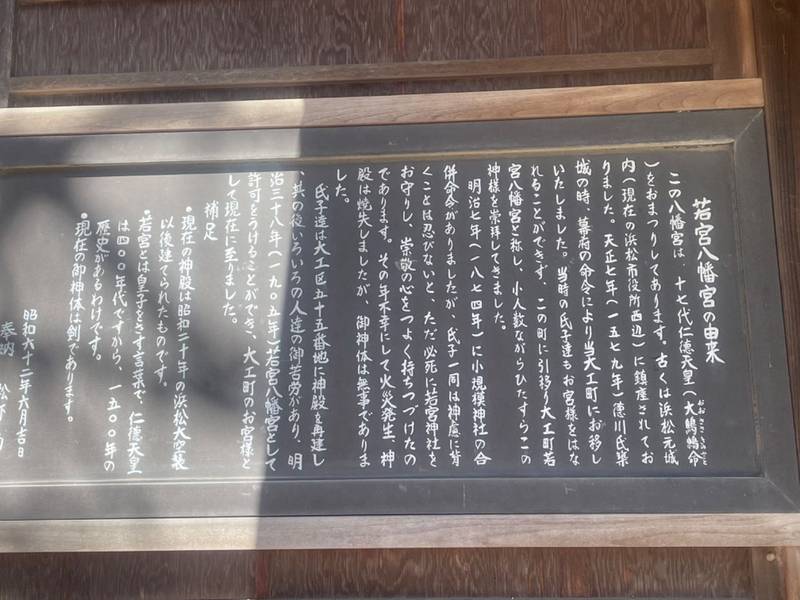 若宮八幡宮の由来
この八幡宮は、十七代仁徳天皇(大鷦鷯命
おおささぎのみこと
)をおまつりしてあります。古くは浜松元城
内(現在の浜松市役所西辺)に鎮座されてお
りました。天正七年(一五七九年)徳川氏築
城の時、幕府の命令により当大工町にお移し
いたしました。当時の氏子達もお宮様をはな
れることができず、この町に引移り大工町若
宮八幡宮と称し、小人数ながらひたすらこの
神様を崇拝してきました。
明治七年(一八七四年)に小規模神社の合
併命令がありましたが、氏子一同は神慮に背
くことは忍びないと、ただ必死に若宮神社を
お守りし、崇敬の心をつよく持ちつづけたの
であります。その年不幸にして火災発生、神
殿は焼失しましたが、御神体は無事でありま
した。
氏子達は大工区五十五番地に神殿を再建し
、其の後いろいろの人達の御苦労があり、明
治三十八年(一九〇五年)若宮八幡宮として
許可をうけることができ、大工町のお宮様と
して現在に至りました。
補足
•現在の神殿は昭和二十年の浜松大空襲
以後建てられたものです。
•若宮とは皇子をさす言葉で、仁徳天皇
は四〇〇年代ですから、一五〇〇年の
歴史があるわけです。
•現在の御神体は剣であります。
昭和六十二年六月吉日
奉納